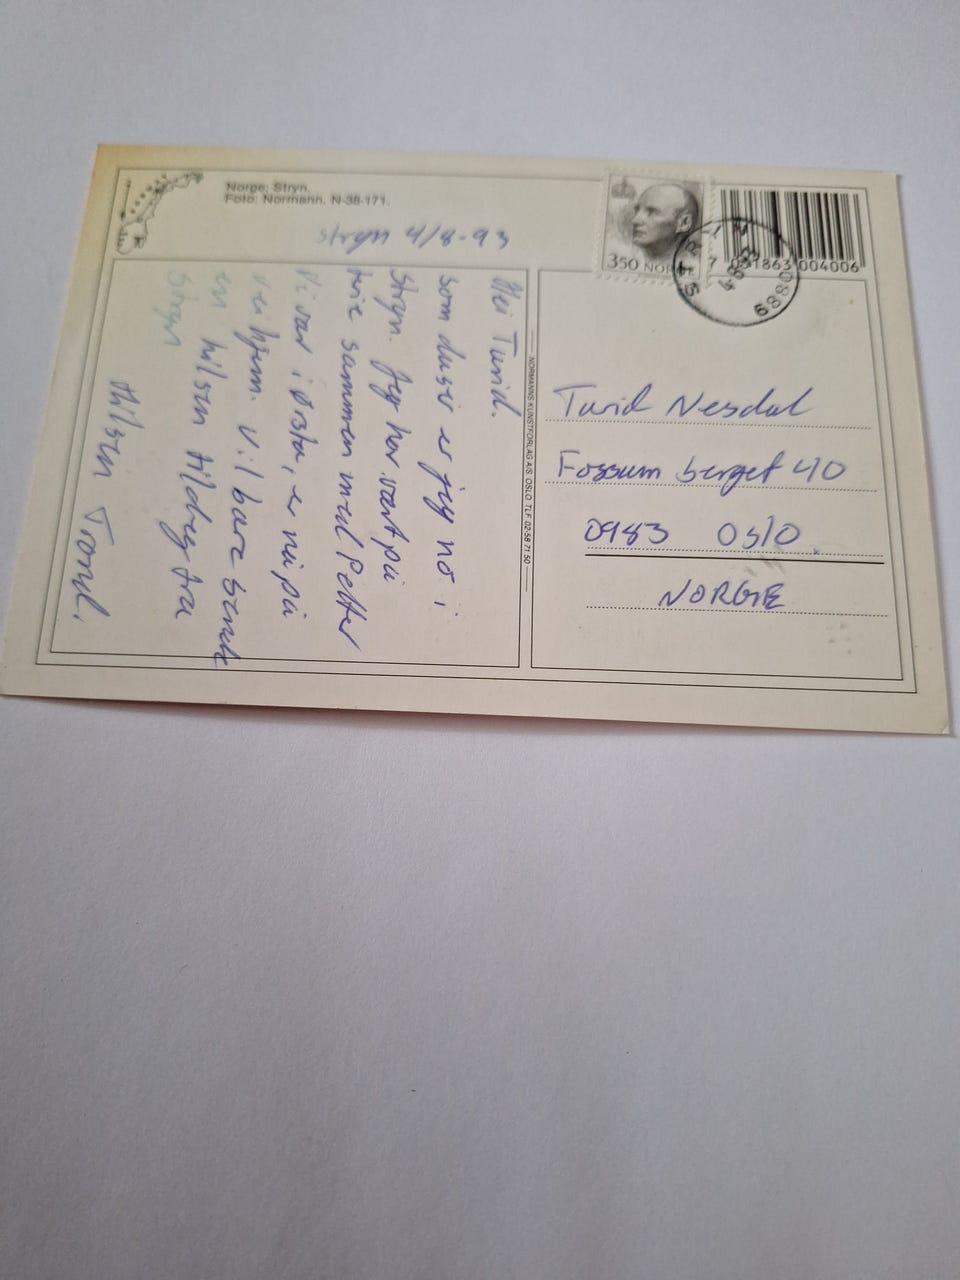 Norge: Stryn.
Foto: Normann. N-38-171.
Stryn 4/8-93
Hei Turid.
Som du ser er jeg nå i
Stryn. Jeg har vært på
turie sammen med Petter
Vi var i Ørsta, er nå på
vei hjem. Vil bare sende
en hilsen til deg fra
Stryn
Hilsen Trond.
NORMANNS KUNSTFORLAG A/S. OSLO. TLF 02-58 71 50
350 NOR
7 031863 004006
6880 STRYN
4.8.93
Turid Nesdal
Fossum berget 40
0983 Oslo
NORGE